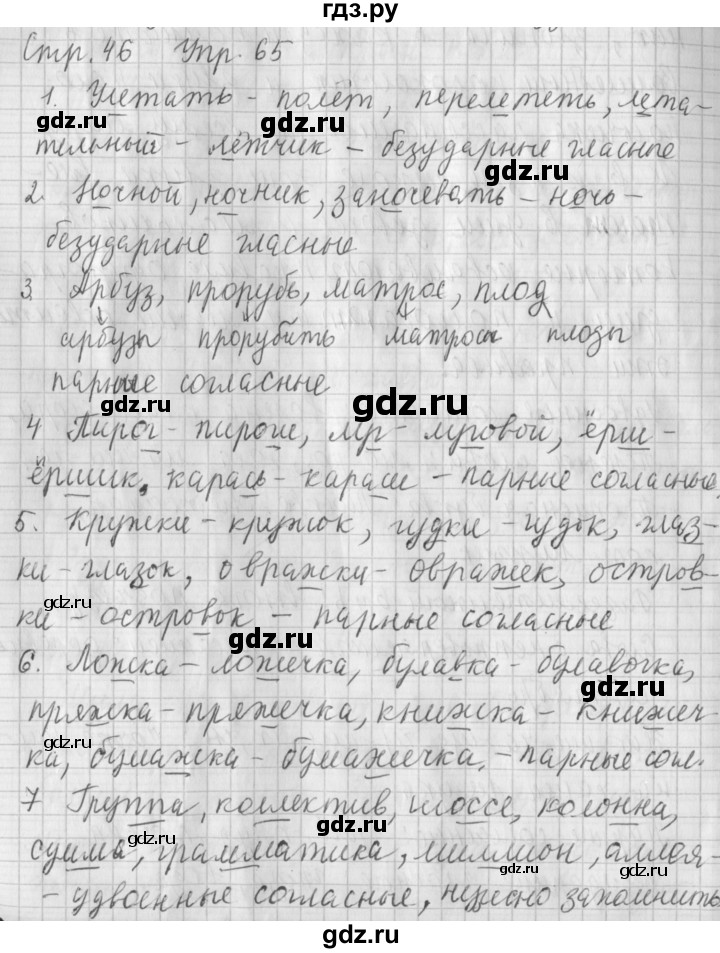 гдз.ру
Стр. 46 Упр. 65
1. Улетать - полёт, перелететь, лета-
gdz.ru gdz.ru
тельный - лётчик - безударные гласные
2. Ночной, ночник, заночевать - ночь -
gdz.ru
безударные гласные
3. Арбуз, прорубь, матрос, плод
gdz.ru
арбузы прорубить матросы плоды
парные согласные
gdz.ru gdz.ru
4 Пирог - пироги, луг - луговой, ёрш -
ёршик, карась - караси - парные согласные
gdz.ru
5. Кружки - кружок, гудки - гудок, глаз-
gdz.ru
ки - глазок, овражки - овражек, остров-
gdz.ru
ки - островок - парные согласные
gdz.ru
6. Ложка - ложечка, булавка - булавочка,
gdz.ru
пряжка - пряжечка, книжка - книжеч-
gdz.ru
ка, бумажка - бумажечка. - парные согл.
7 Группа, коллектив, шоссе, колонна,
gdz.ru gdz.ru
сумма, грамматика, миллион, аллея -
gdz.ru
- удвоенные согласные, нужно запомнить
gdz.ru